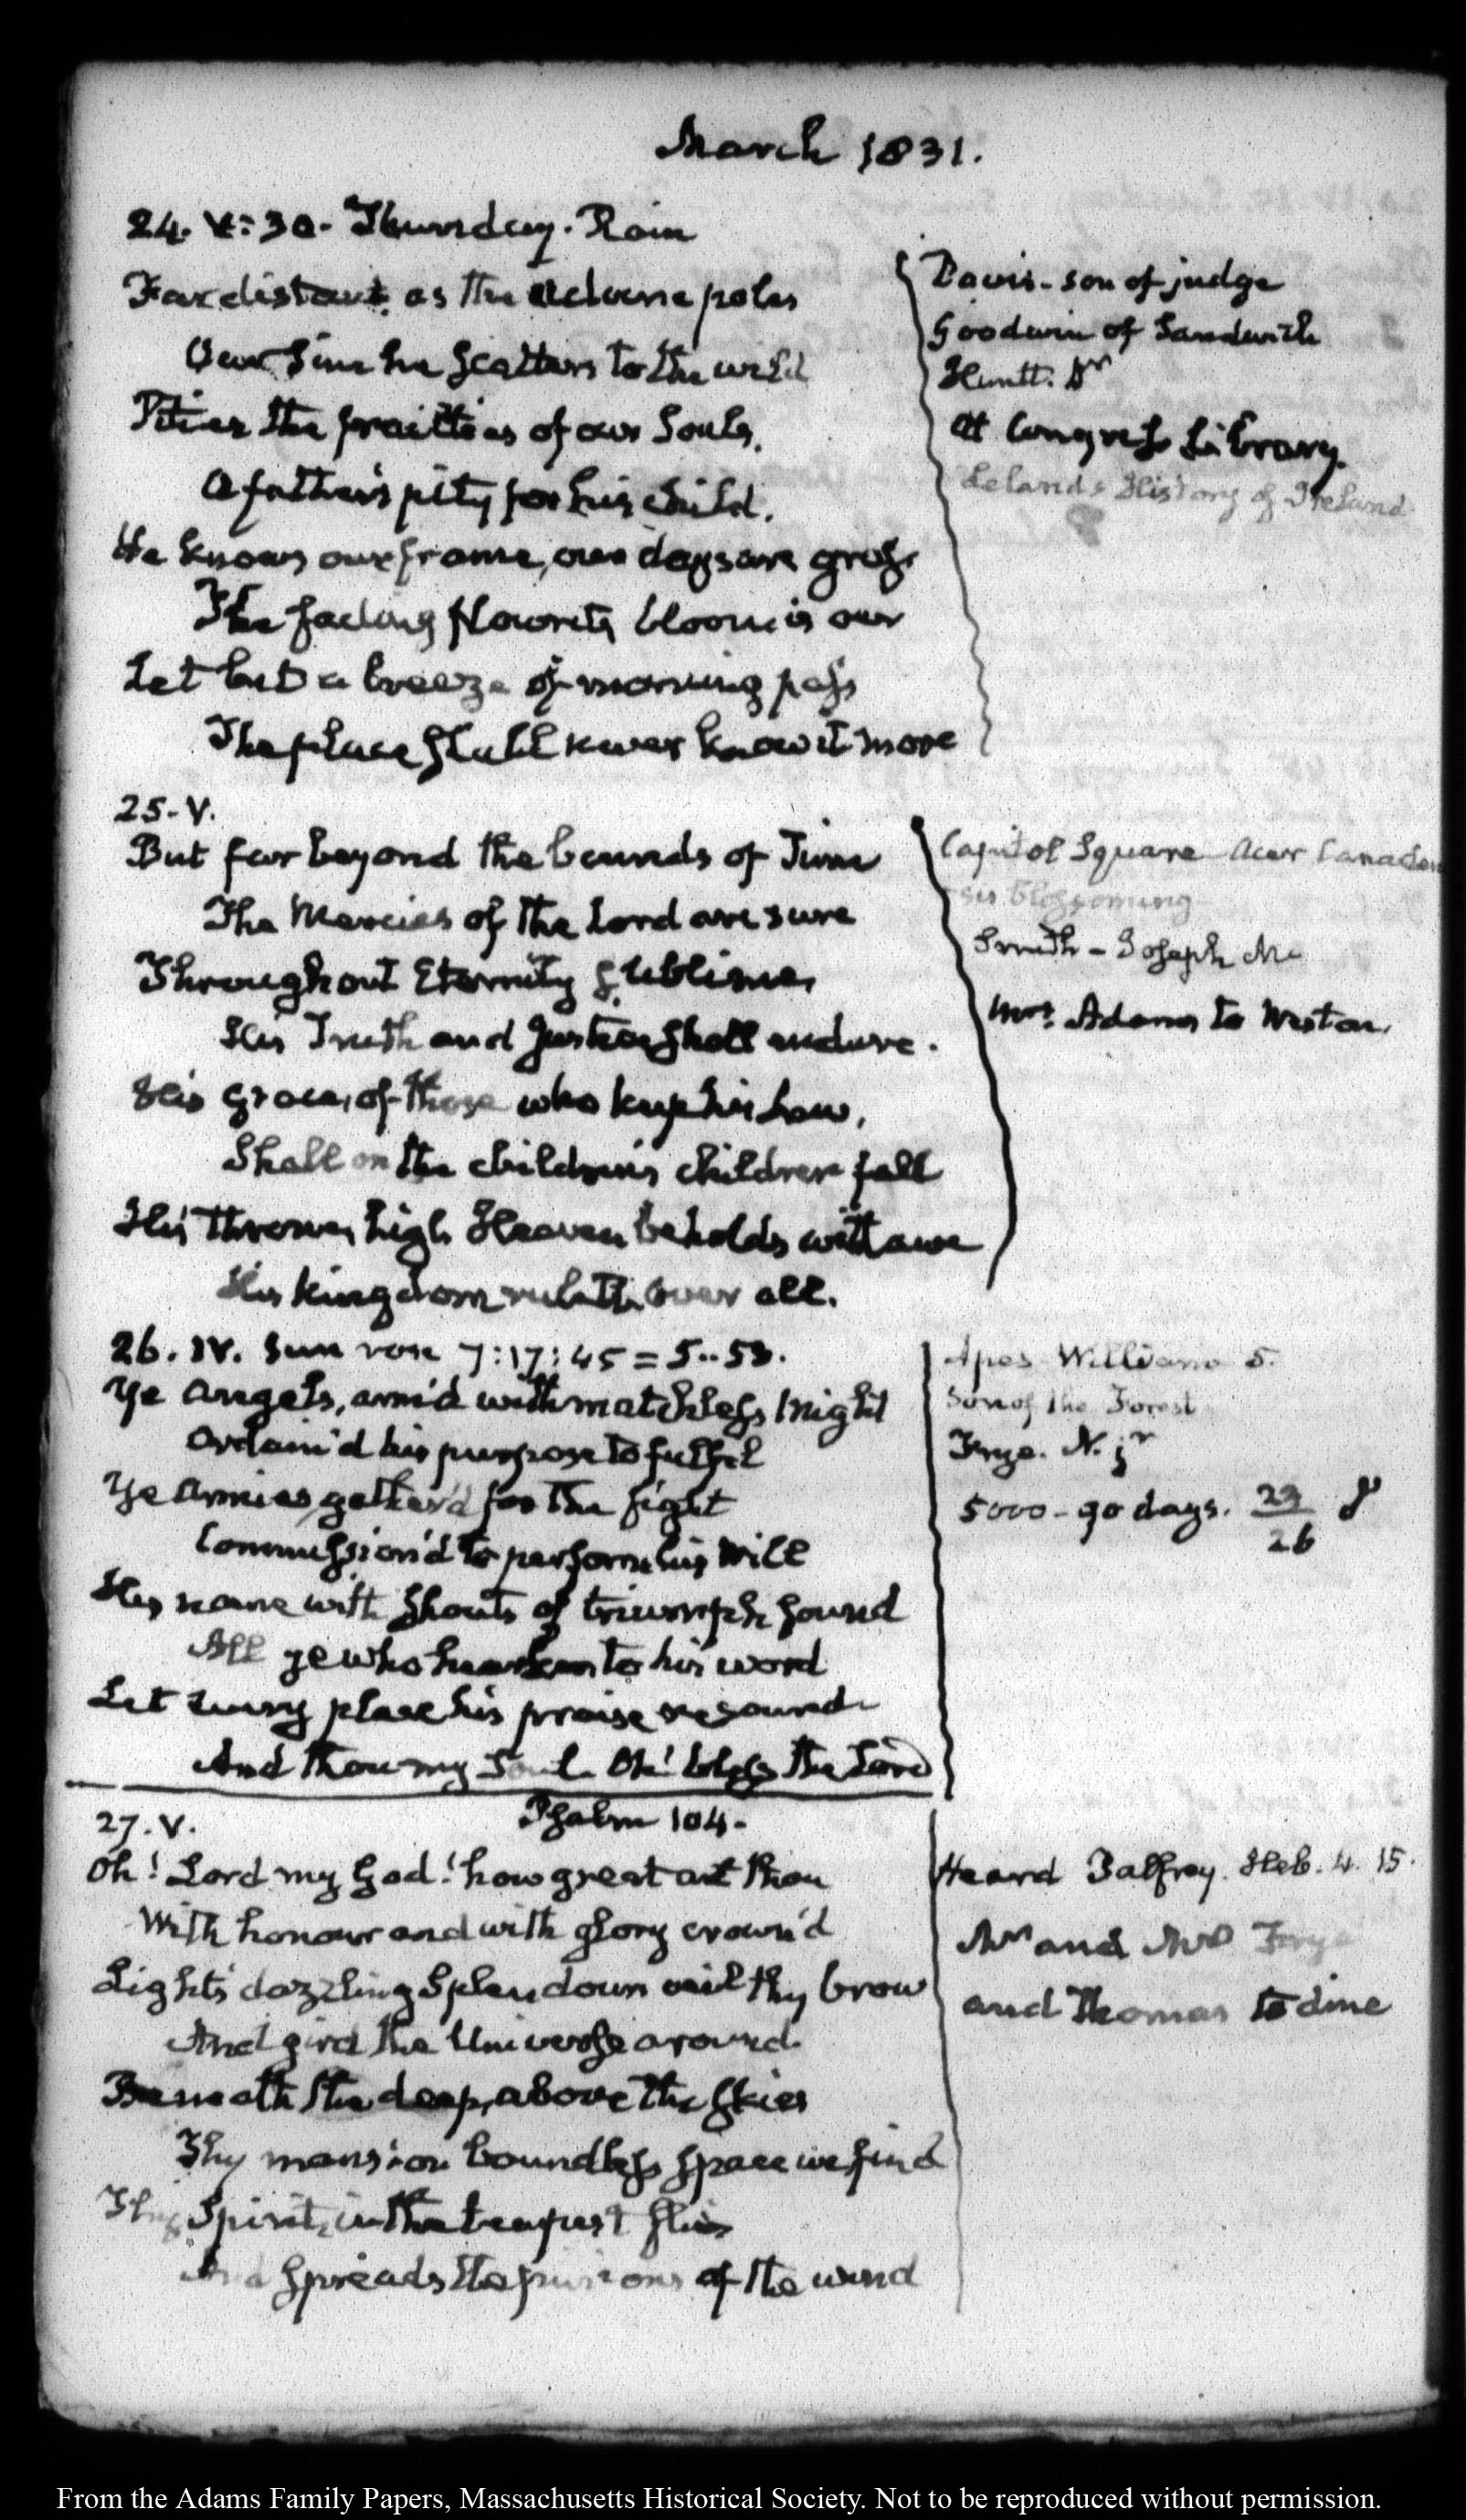 March 1831.
24. V:30. Thursday. Rain
Far distant, as the adverse poles
Our Sins he scatters to the wild
Pities the frailties of our Souls,
A father's pity for his child.
He knows our frame, our days are grass
The fading flowret's bloom is our
Let but a breeze of morning pass
The place shall never know it more
Davis - son of judge
Goodwin of Sandwich
Huntt. Dr
At Congress Library.
Leland's History of Ireland
25. V.
But far beyond the bounds of Time
The Mercies of the Lord are sure
Throughout Eternity sublime,
His Truth and Justice shall endure.
His grace, of those who keep his Law,
Shall on the children's children fall
His throne, high Heaven beholds with awe
His kingdom ruleth over all.
Capitol Square Acer Canaden
sis blossoming
Smith - Joseph Mc
Mrs. Adams to Weston.
26. IV. Sun rose 7:17:45 = 5..53.
Ye Angels, arm'd with matchless might
Ordain'd his purpose to fulfil
Ye Armies gather'd for the fight
Commission'd to perform his will
His name with shouts of triumph sound
All ye who hearken to his word
Let every place his praise resound
And thou my Soul Oh! bless the Lord
Apes William 5.
Son of the Forest
Frye. N. jr
5000 - 90 days. 23/26
27. V. Psalm 104.
Oh! Lord my God! how great art thou
With honour and with glory crown'd
Light's dazzling Splendours veil thy brow
And gird the Universe around.
Beneath the deep, above the skies
Thy mansion boundless space we find
Thy Spirit, in the tempest flies
And spreads the pinions of the wind
Heard Palfrey. Heb. 4. 15.
Mr and Mrs Frye
and Thomas to dine
From the Adams Family Papers, Massachusetts Historical Society. Not to be reproduced without permission.